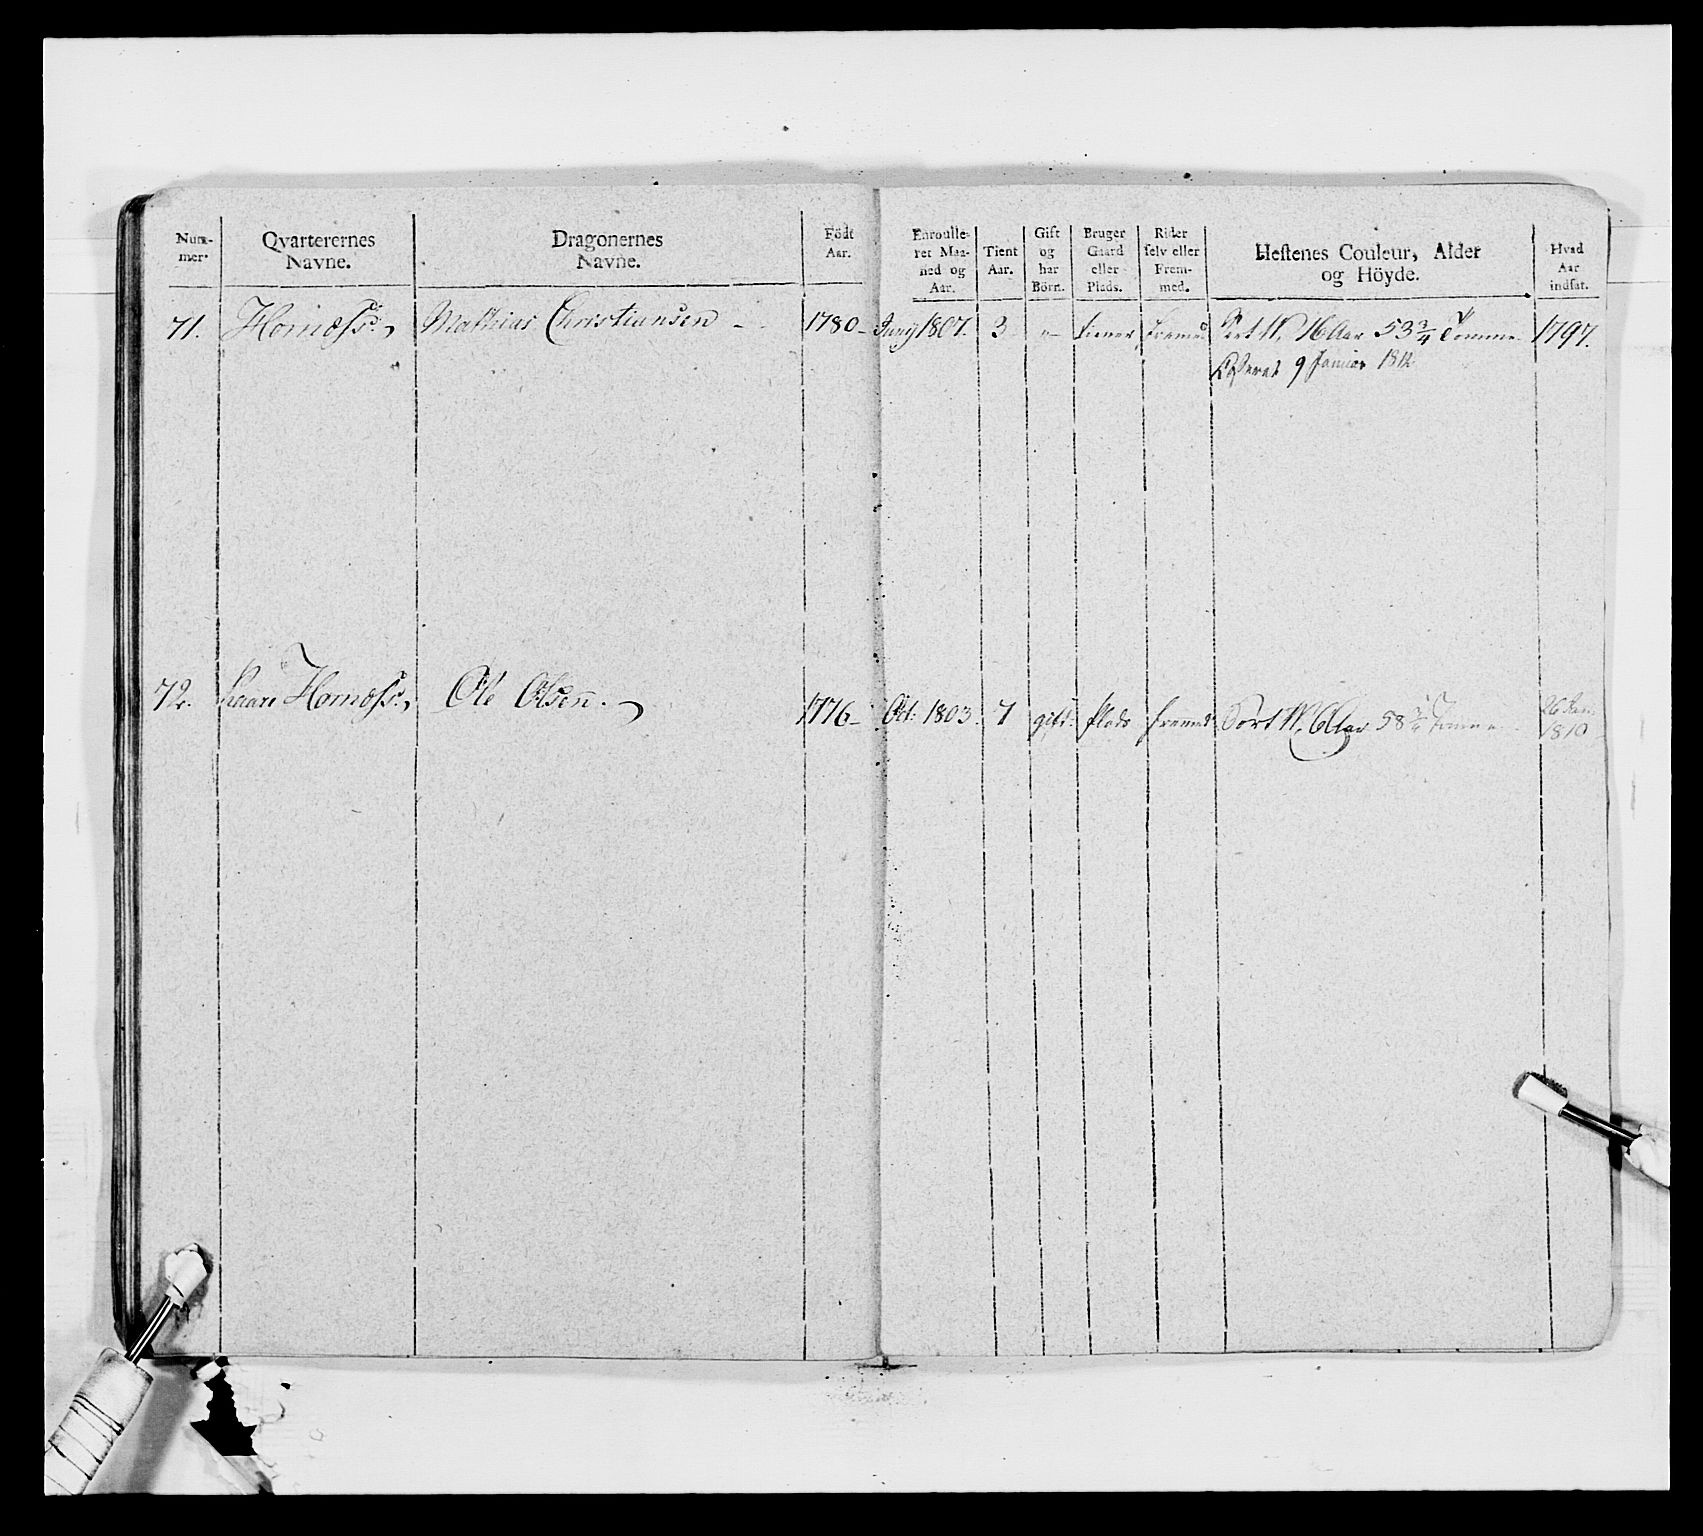 Num-
mer.
Qvarterernes
Navne.
Dragonernes
Navne.
Födt
Aar.
Enroulle-
ret Maa-
ned og
Aar.
Tient
Aar.
Gift
og
har
Börn.
Bruger
Gaard
eller
Plads.
Rider
selv eller
Frem-
med.
Hestenes Couleur, Alder
og Höyde.
Hvad
Aar
indsat.
71. Mathias Christiansen 1780 Juny 1807. 3 - tiener fremed 16 Aar 53 3/4 Tomme 1797.
9 Januar 1812
72. Ole Olsen. 1776 Oct: 1803. 7 gift Plads fremed Sort W. 6 Aar 58 3/4 Tomme 26
1810